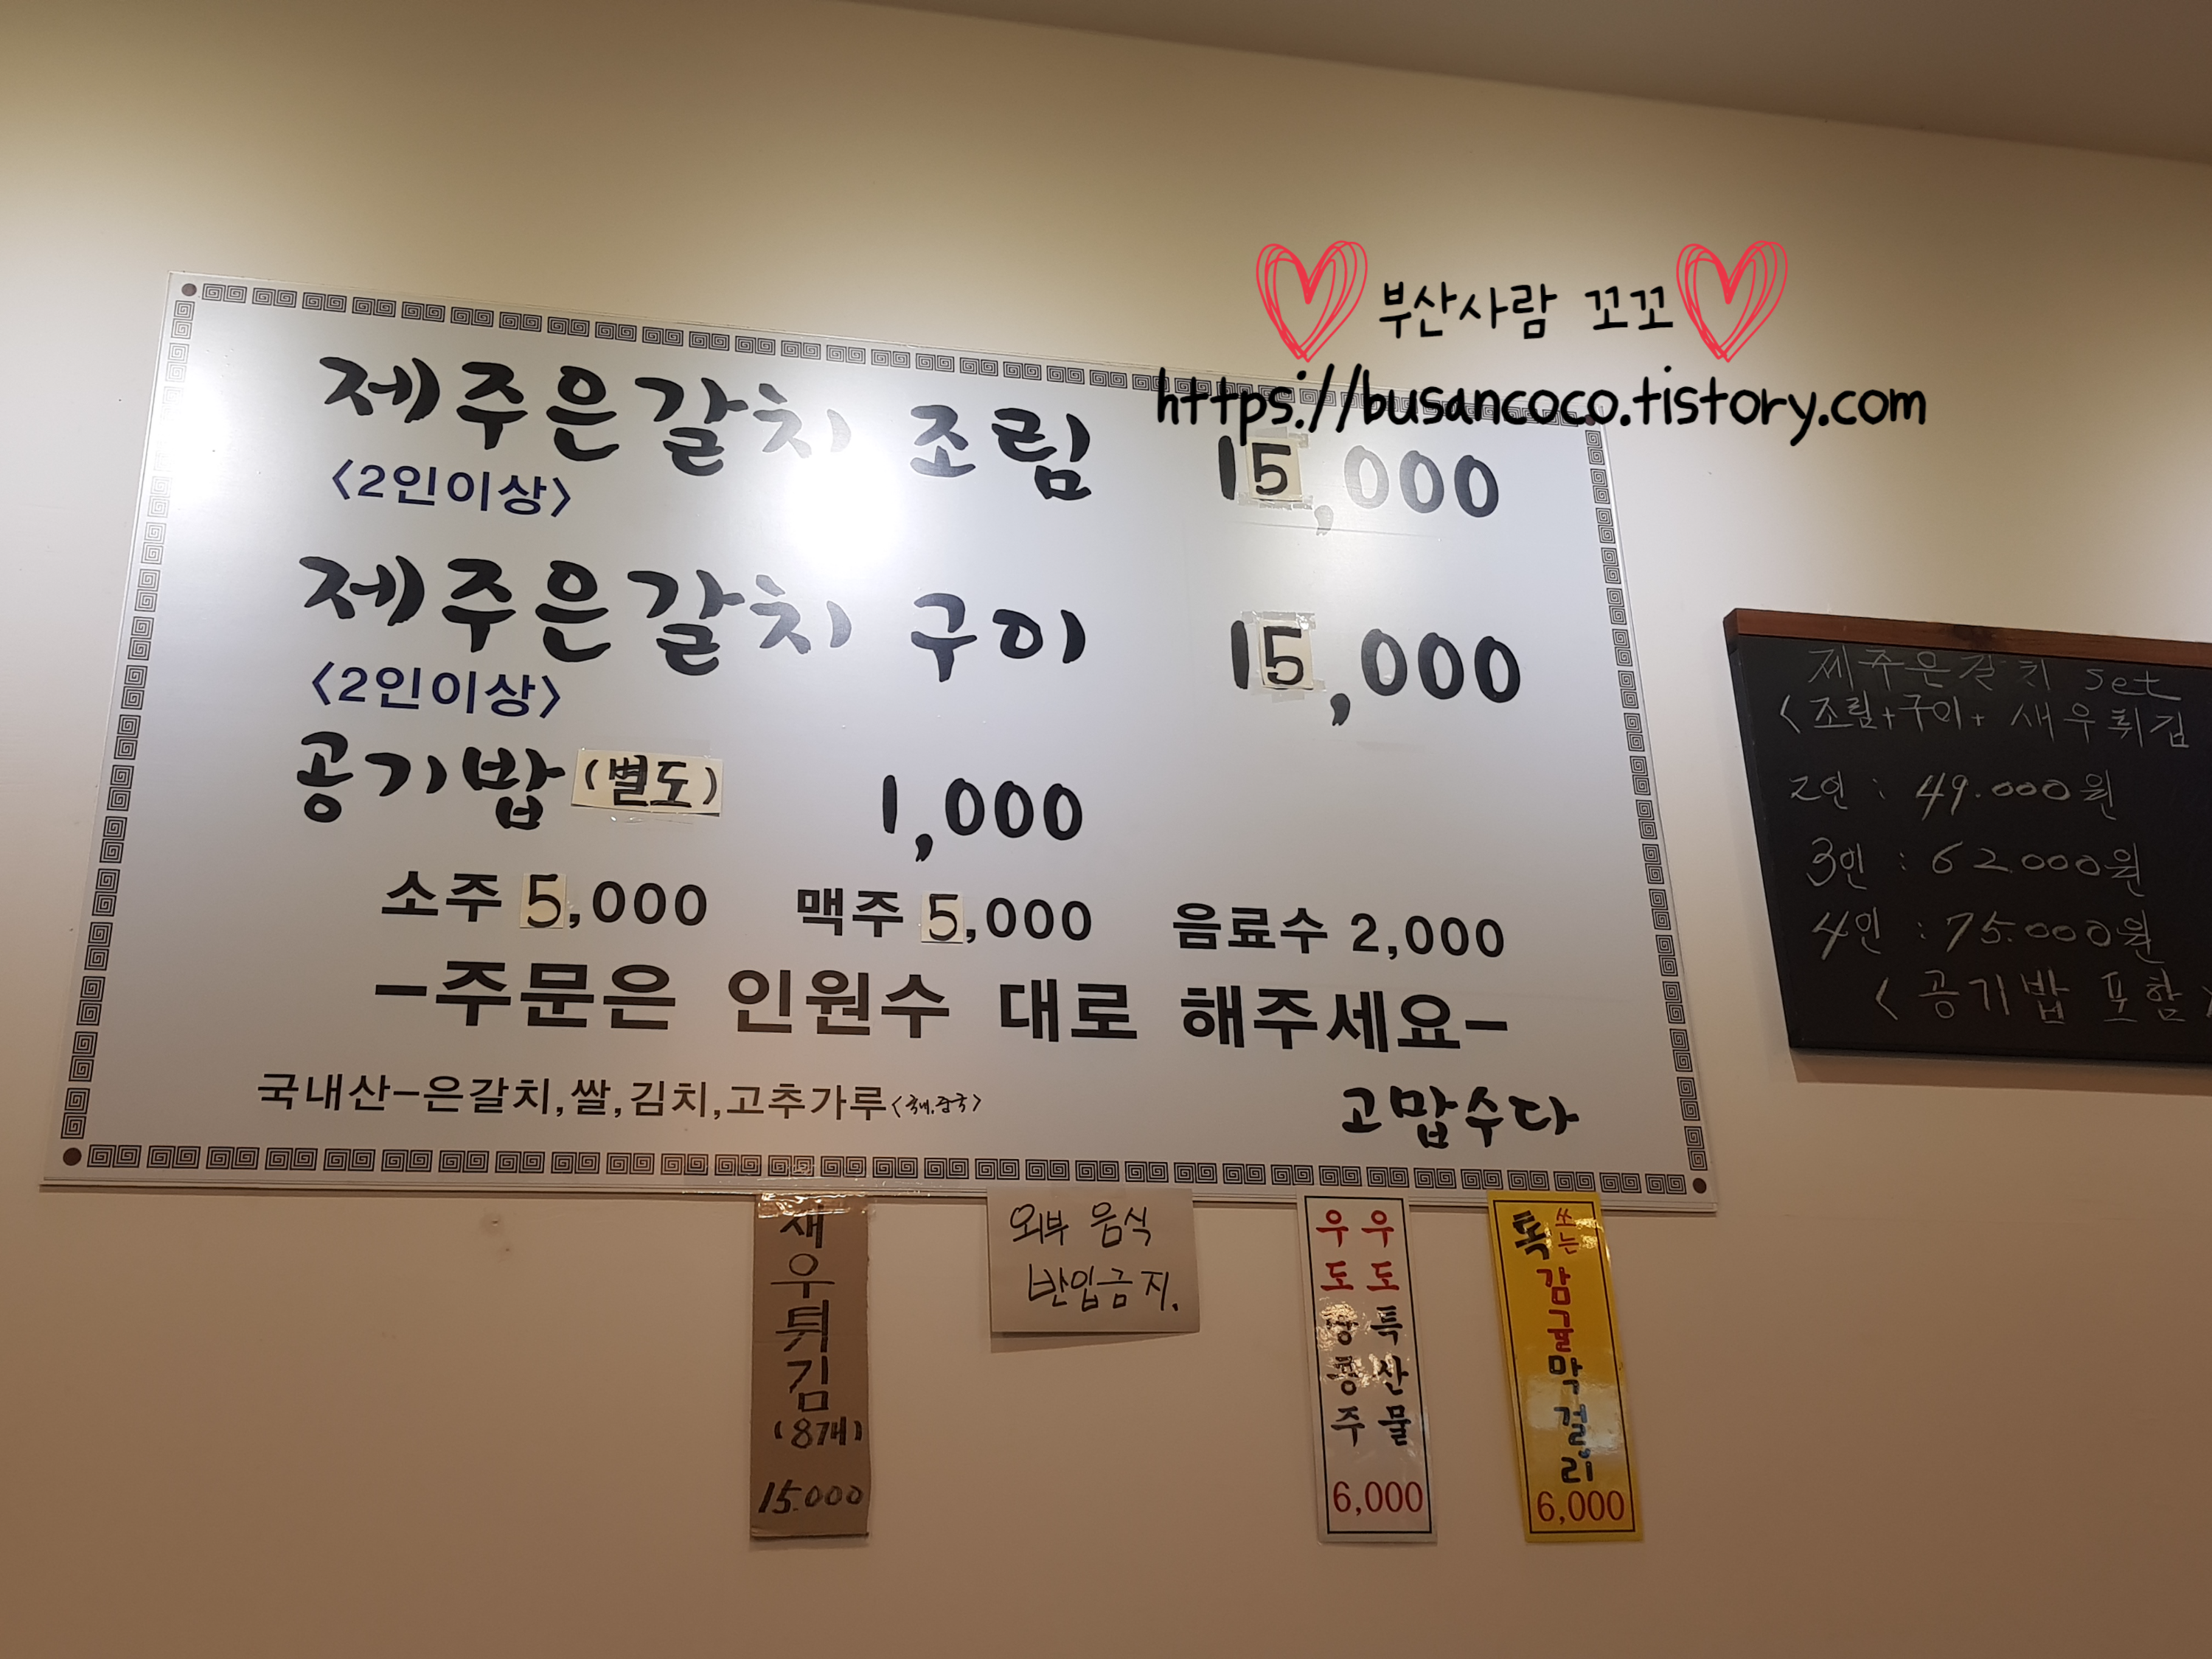 부산사람 꼬꼬
https://busancoco.tistory.com
제주은갈치 조림 15,000
<2인이상>
제주은갈치 구이 15,000
<2인이상>
공기밥 (별도) 1,000
소주 5,000 맥주 5,000 음료수 2,000
-주문은 인원수 대로 해주세요-
국내산-은갈치,쌀,김치,고추가루<국내,중국>
고맙수다
제주은갈치 set
<조림+구이+ 새우튀김
2인 : 49.000원
3인 : 62.000원
4인 : 75.000원
<공기밥 포함>
새우튀김
(8개)
15.000
외부 음식
반입금지.
우도특산물
우도땅콩주
6,000
톡쏘는
감귤막걸리
6,000